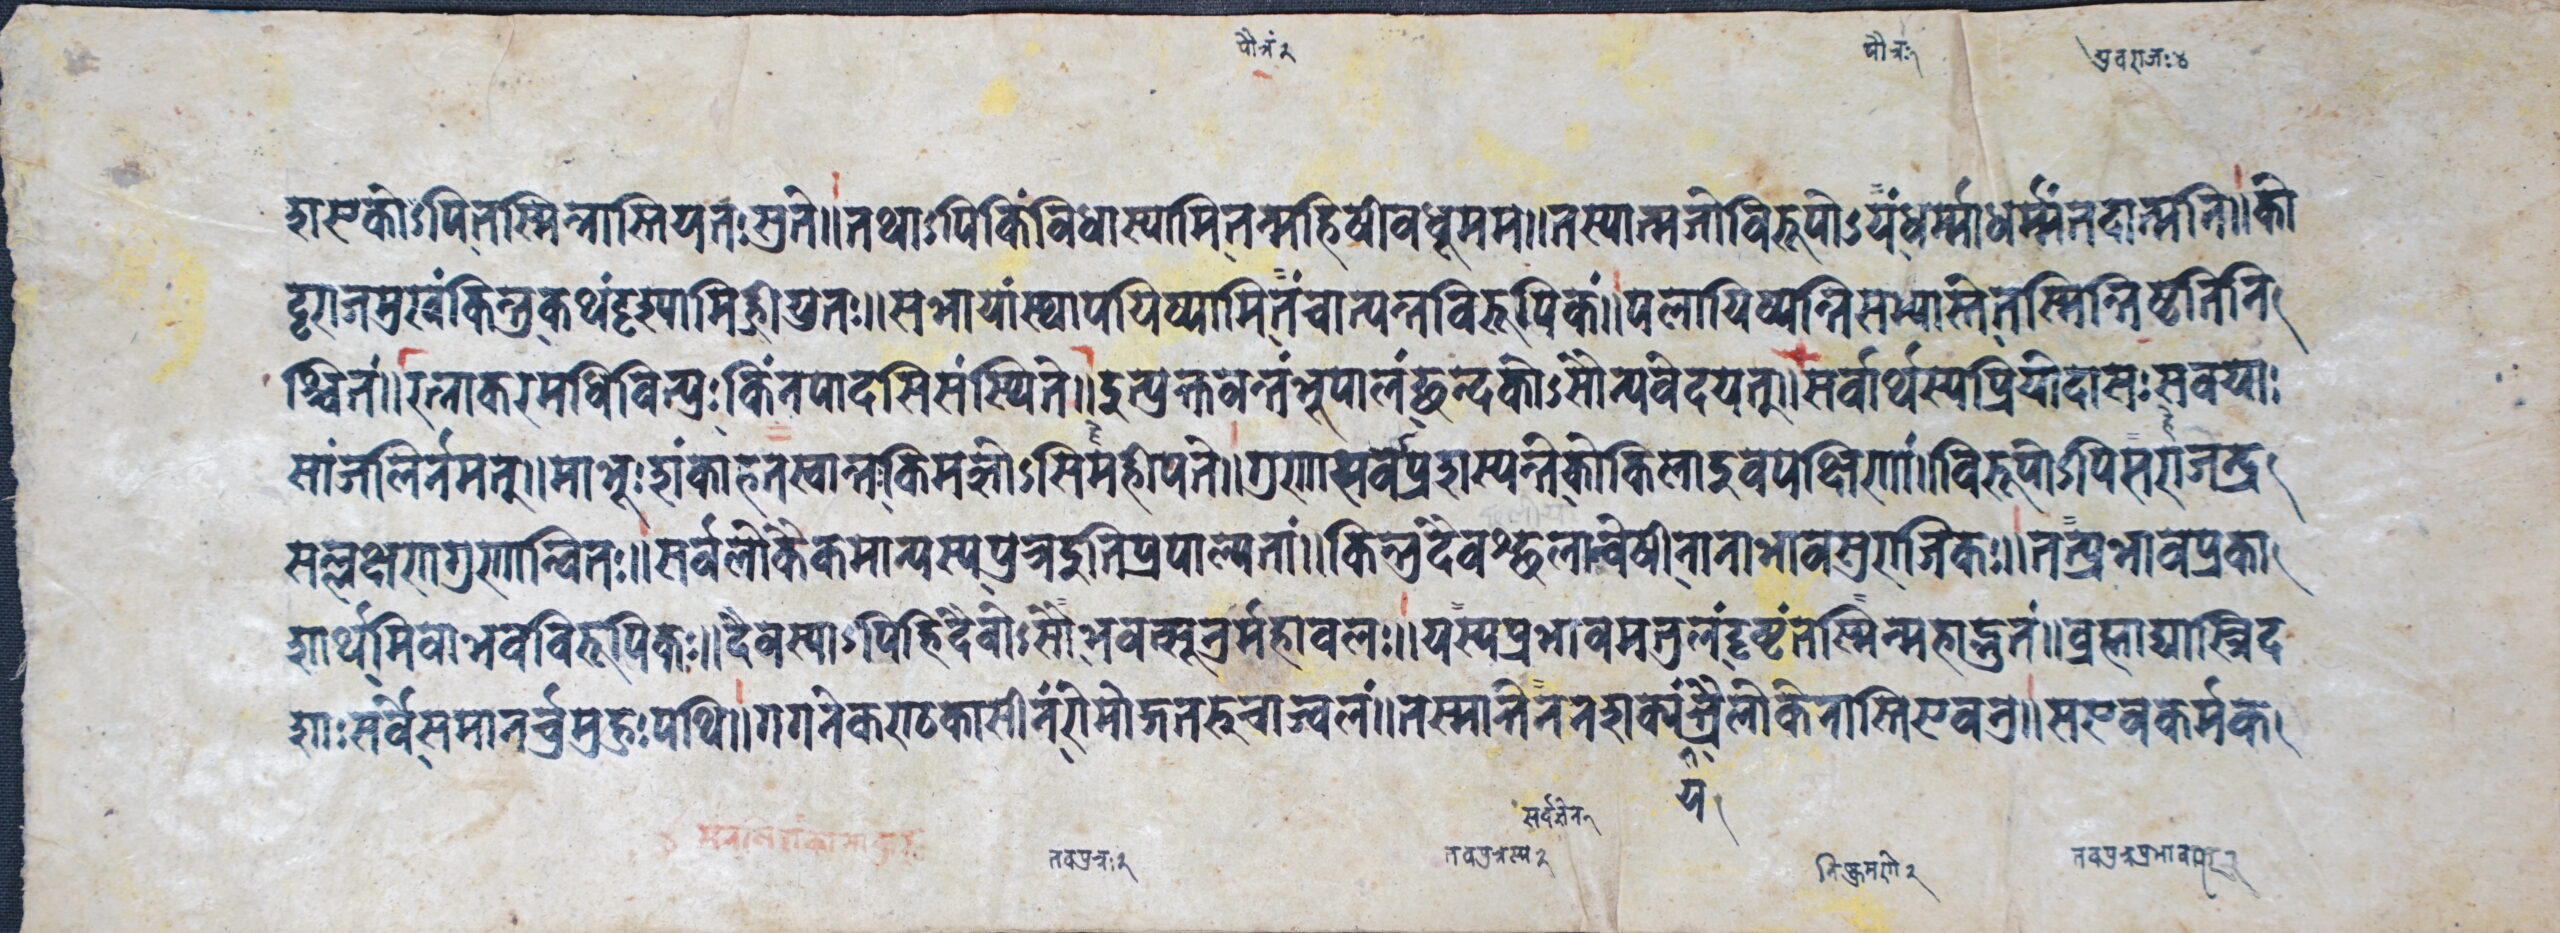 पौत्रं२ पौत्रः१ पुवराजः४
शएकोऽपितस्मिन्नास्तियतःसुते॥तथाऽपिकिंविधास्यामितन्महिषीवधूमम॥तस्यात्मजोविरूपोऽयंधर्म्माधर्म्मंतदात्मनि॥की
दृराजमुखंकिन्तुकथंदृश्यामिह्रीयुतः॥सभायांस्थापयिष्यामितंचात्यन्तविरूपिकं॥पलायिष्यन्तिसभ्यास्तेतस्मिन्तिष्ठतिनि
श्चितं॥रत्नाकरमधिविन्प्रःकिंनपादसिसंस्यिते॥इत्युक्तवन्तंभूपालंछन्दकोऽसौन्यवेदयत्॥सर्वार्थस्यप्रियोदासःसवयाः
सांजलिर्नमन्॥माभूःशंकाहतस्वान्तःकिमज्ञोऽसिमहीपते॥गुणात्सर्वेप्रशस्यन्तेकोकिलाइवपक्षिणां॥विरूपोऽपिसराजेन्द्र
सल्लक्षणगुणान्वितः॥सर्वलोकैकमान्यस्यपुत्रइतिप्रपाल्यतां॥किन्तुदैवश्छलान्वेषीनानाभावसुराजिकः॥तत्प्रभावप्रका
शार्थमिवाभवेविरूपिकः॥दैवस्याऽपिहिदैवोऽसौभवत्सूनुर्महावलः॥यस्यप्रभावमतुलंदृष्टंतस्मिन्महाद्भुतं॥व्रह्माद्यास्त्रिद
शाःसर्वेसमानर्चुर्मुहुःपथि॥गगनेकराठकासीनंरोमोद्गतरुचोज्वलं॥तस्मात्तेनेनशक्यंत्रैलोकेनास्तिएवत्र॥सएवकर्मक
ये
सर्वज्ञेन१
तवपुत्रः२ तवपुत्रस्य२ निष्क्रमणे२ तवपुत्रप्रभाव